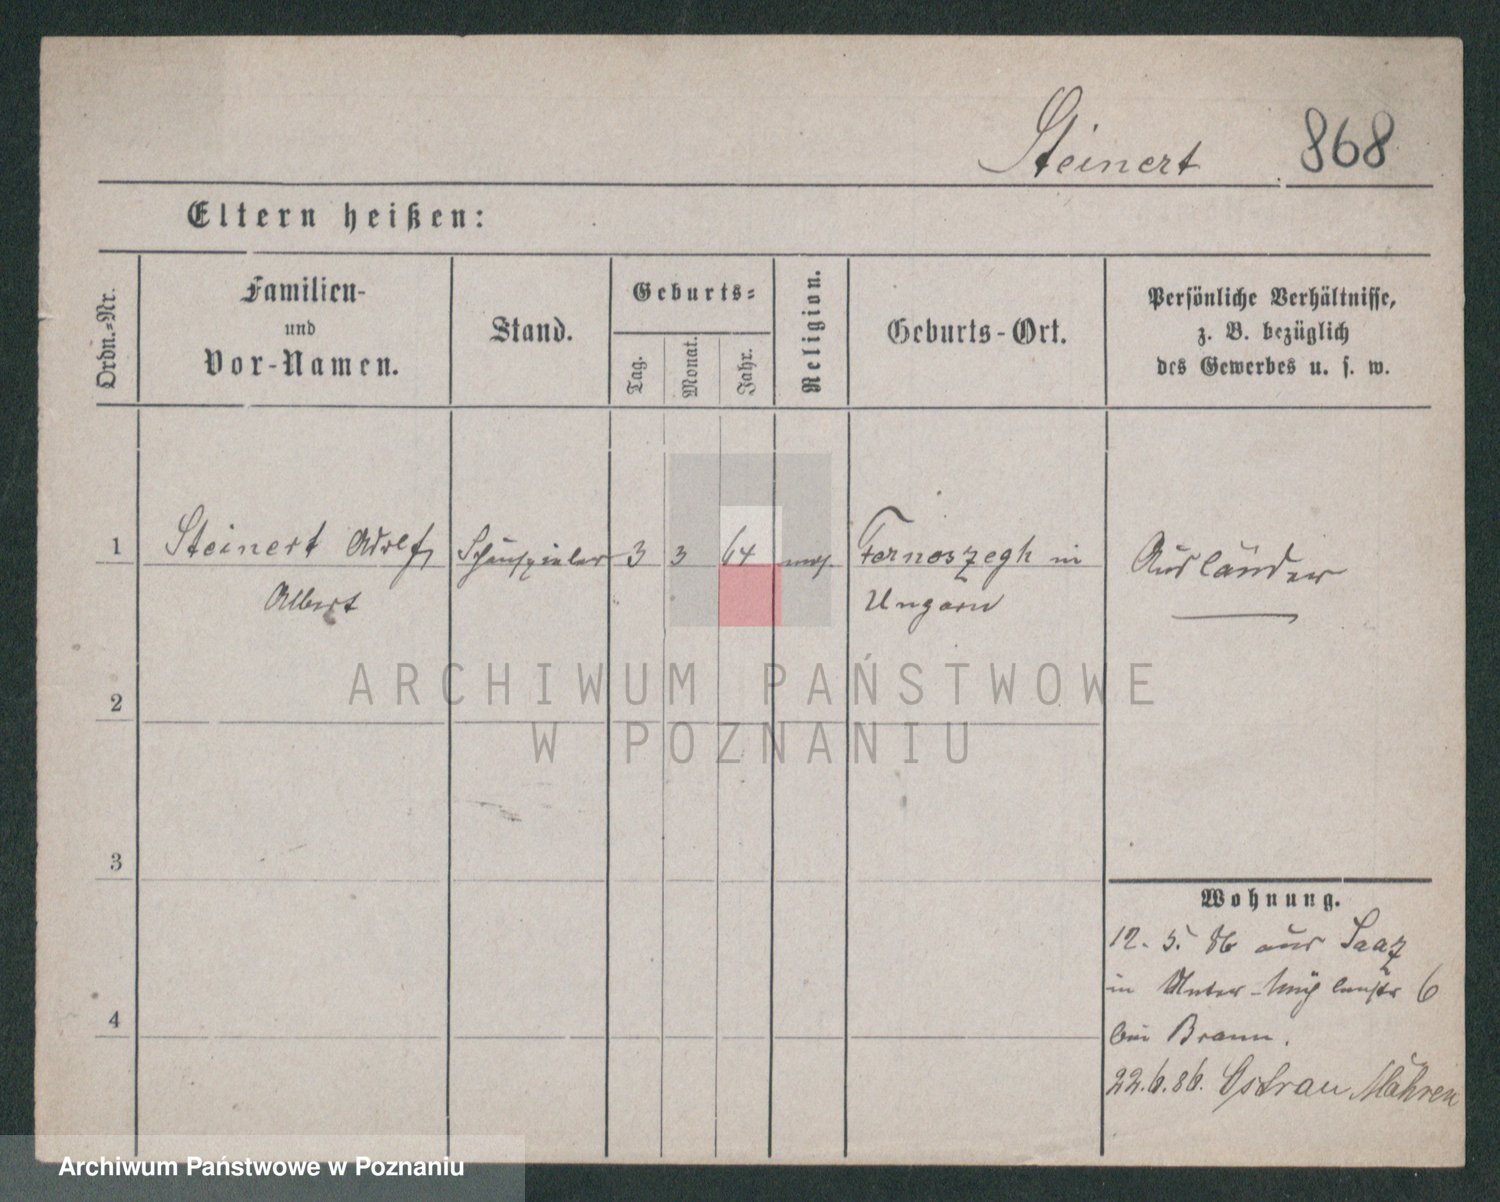 Steinert 868
Eltern heißen:
Ordn.-Nr.
Familien-
und
Vor-Namen.
Stand.
Geburts-
Tag.
Monat.
Jahr.
Religion.
Geburts-Ort.
Persönliche Verhältnisse,
z. B. bezüglich
des Gewerbes u. s. w.
1 Steinert Adolf, Schauspieler 3 3 64 mos. Tornoszegh in Ausländer
Albert Ungarn
2
3
4
Wohnung.
12. 5. 86 aus Saaz
in Unter-Mühlenstr 6
bei Braun.
22.6.86. Ostrau Mähren
ARCHIWUM PAŃSTWOWE
W POZNANIU
Archiwum Państwowe w Poznaniu